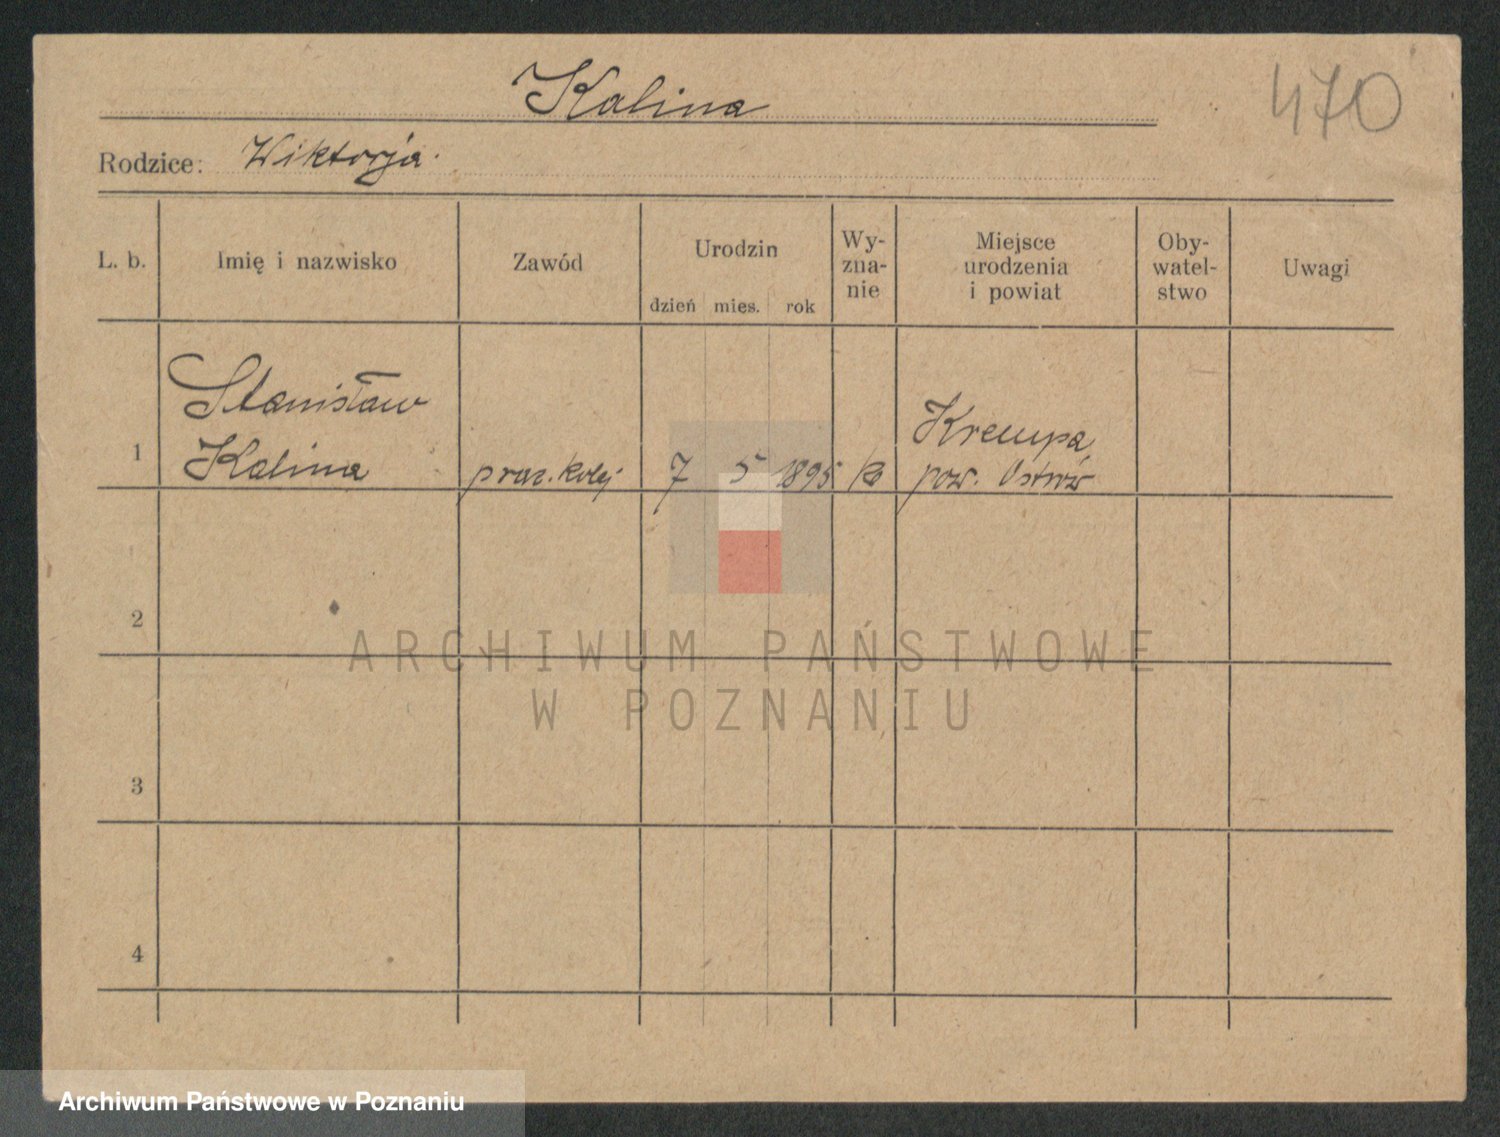 Kalina
470
Rodzice: Wiktorja.
L. b. Imię i nazwisko Zawód Urodzin Wy-
zna-
nie Miejsce
urodzenia
i powiat Oby-
watel-
stwo Uwagi
dzień mies. rok
Stanisław
1 Kalina prac. kolej 7 5 1895 k Krempa,
pow. Ostrów
2
ARCHIWUM PAŃSTWOWE
W POZNANIU
3
4
Archiwum Państwowe w Poznaniu